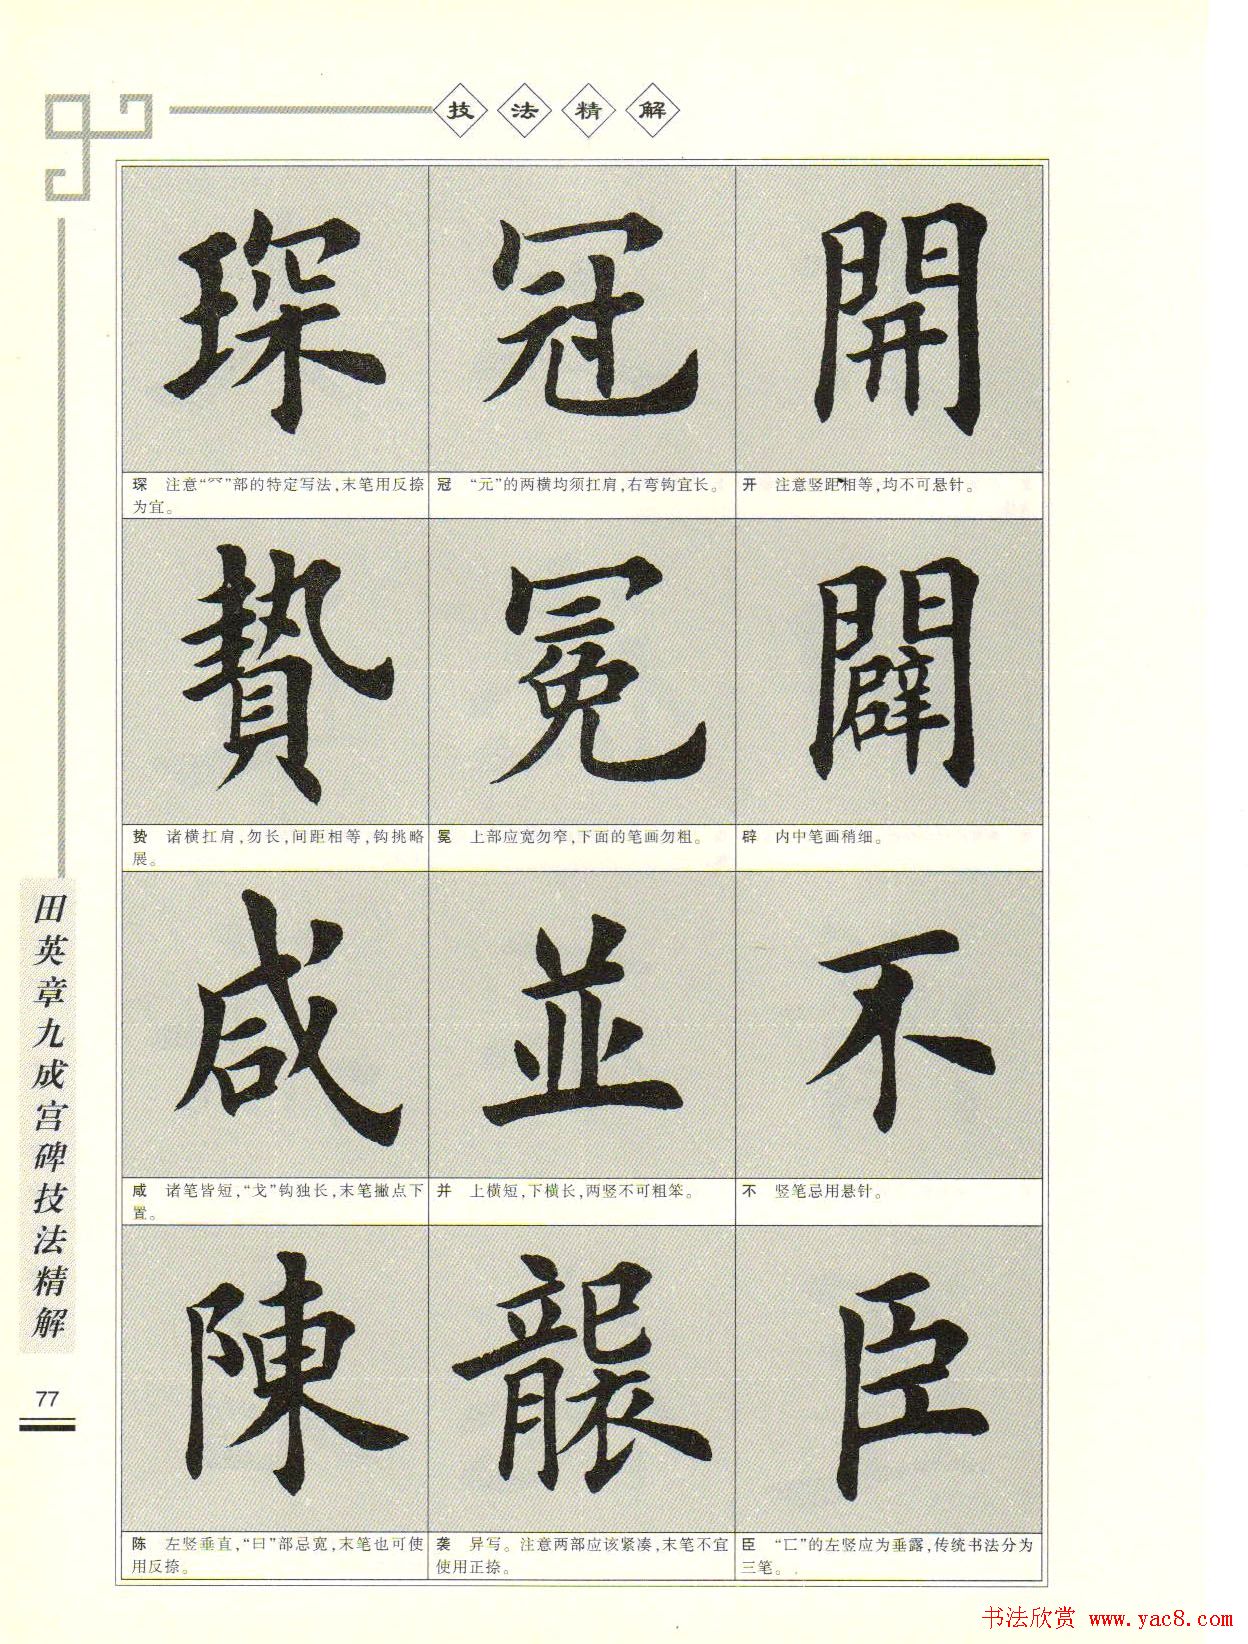 技法精解
琛 冠 開
琛 注意“罙”部的特定写法,末笔用反捺
为宜。
冠 “元”的两横均须扛肩,右弯钩宜长。
开 注意竖距相等,均不可悬针。
贄 冕 闢
贽 诸横扛肩,勿长,间距相等,钩挑略
展。
冕 上部应宽勿窄,下面的笔画勿粗。
辟 内中笔画稍细。
咸 並 不
咸 诸笔皆短,“戈”钩独长,末笔撇点下
置。
并 上横短,下横长,两竖不可粗笨。
不 竖笔忌用悬针。
陳 襲 臣
陈 左竖垂直,“曰”部忌宽,末笔也可使
用反捺。
袭 异写。注意两部应该紧凑,末笔不宜
使用正捺。
臣 “匚”的左竖应为垂露,传统书法分为
三笔。
田英章九成宫碑技法精解
77
书法欣赏 www.yac8.com